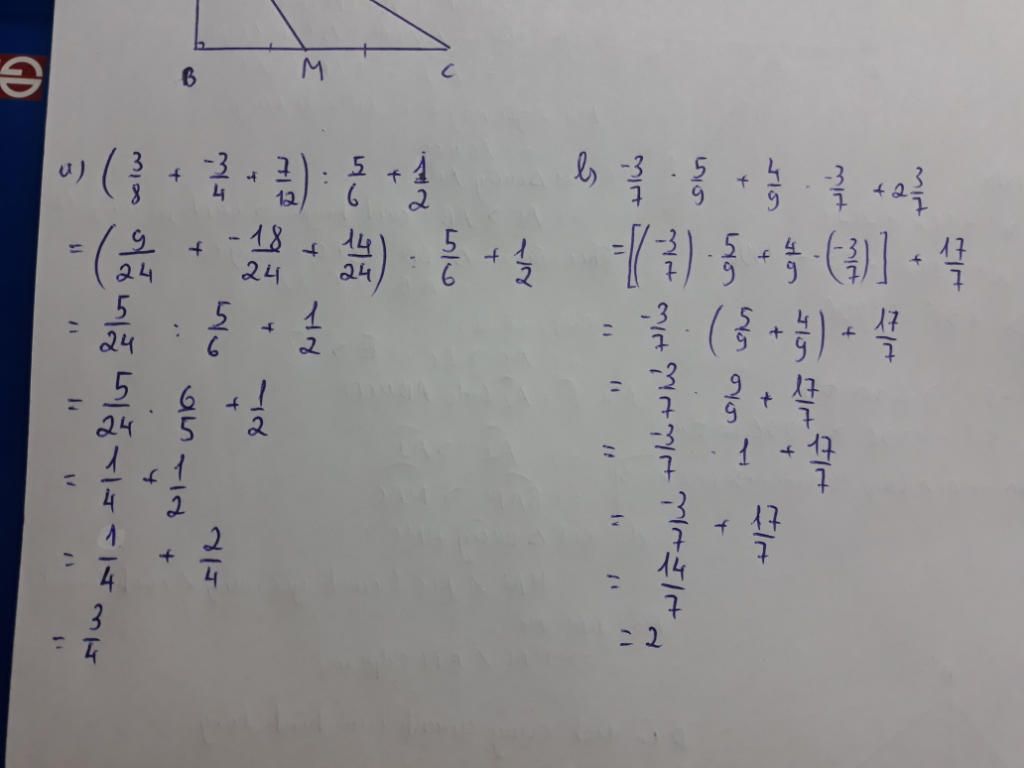 B M C
a) (3/8 + -3/4 + 7/12) : 5/6 + 1/2
= (9/24 + -18/24 + 14/24) : 5/6 + 1/2
= 5/24 : 5/6 + 1/2
= 5/24 . 6/5 + 1/2
= 1/4 + 1/2
= 1/4 + 2/4
= 3/4
b) -3/7 . 5/9 + 4/9 . -3/7 + 2 3/7
= [(-3/7) . 5/9 + 4/9 . (-3/7)] + 17/7
= -3/7 . (5/9 + 4/9) + 17/7
= -3/7 . 9/9 + 17/7
= -3/7 . 1 + 17/7
= -3/7 + 17/7
= 14/7
= 2